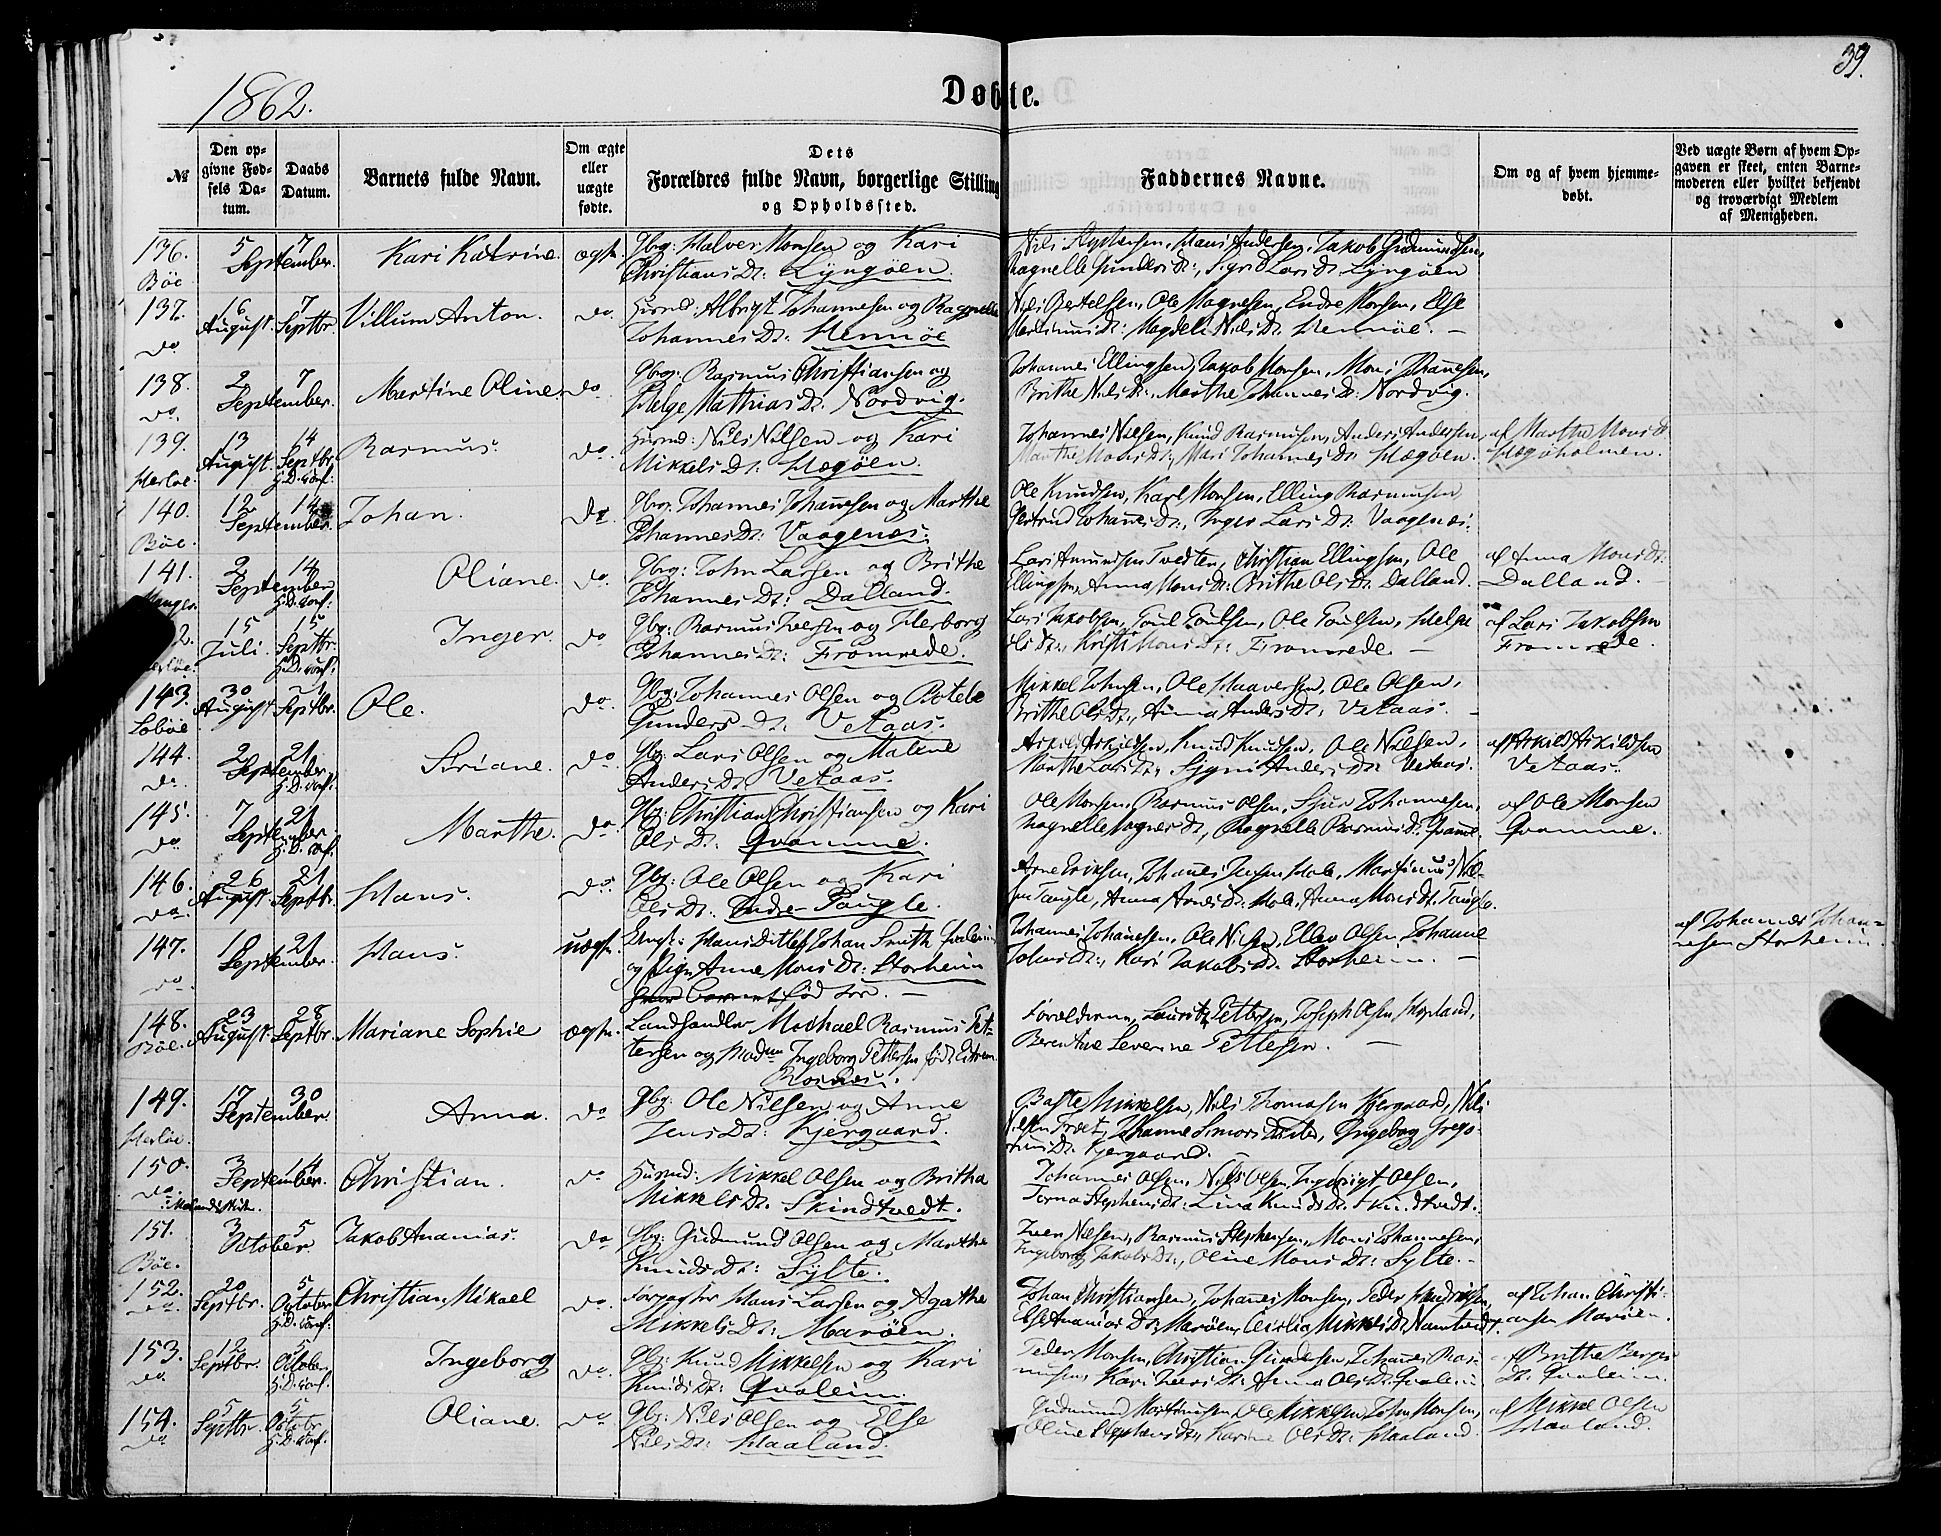 1862.
Døbte.
39.
№
Den op-
givne Fød-
sels Da-
tum.
Daabs
Datum.
Barnets fulde Navn.
Om ægte
eller
uægte
fødte.
Dets
Forældres fulde Navn, borgerlige Stilling
og Opholdssted.
Faddernes Navne.
Om og af hvem hjemme-
døbt.
Ved uægte Børn af hvem Op-
gaven er skeet, enten Barne-
moderen eller hvilket bekjendt
og troværdigt Medlem
af Menigheden.
136. 5 7 Kari Katrine. ægte. Gbr: Halver Monsen og Kari
Böe September. Christians Dt: Lyngöen.
Nils Stephensen, Hans Andersen, Jakob Gudmundsen,
Ragnelle Gunders dt:, Sigrid Lars Dt. Lyngöen
137. 16 August. 7 Septbr. Villum Anton. do. Huusmd: Albrigt Johannesen og Ragnelle
do Johannes Dt: Hennöe
Nils Bertelsen, Ole Magnesen, Endre Monsen, Else
Martinus dt: Magdeli Nils Dt. Hennöe. —
138. 2 7 Martine Oline. do. Gbr: Rasmus Christiansen og
do. September. Helge Mathias Dt. Nordvig.
Johannes Ellingsen, Jakob Monsen, Mons Johannesen,
Brithe Nils Dt:, Marthe Johannes Dt: Nordvig.
139. 13 August. 14 Septbr. Rasmus. do. Huusmd: Nils Nilsen og Kari
Herløe. H.D. conf: Mikkels Dt: Hægöen.
Johannes Nilsen, Knud Rasmusen, Anders Andersen,
Marthe Mons Dt:, Mari Johannes Dt: Hægöen.
af Marthe Mons Dt
Hægöholmen.
140. 12 14 Johan. do. Gbr: Johannes Johannesen og Marthe
Böe. September. Johannes Dt: Vaagenæs.
Ole Knudsen, Karl Monsen, Elling Rasmusen,
Gertrud Johannes Dt:, Inger Lars Dt: Vaagenæs.
141. 2 14 Oliane. do. Gbr: John Larsen og Brithe
Manger. September H.D. conf: Johannes Dt: Dalland.
Lars Amundsen Tvedten, Christian Ellingsen, Ole
Ellingsen, Anna Mons Dt: Brithe Ols Dt: Dalland.
af Anna Mons Dt:
Dalland. —
2. 15 Juli. 15 Septbr. Inger. do Gbr: Rasmus Iversen og Herborg
H.D. conf: Johannes Dt: Fromrede.
Lars Jakobsen, Poul Poulsen, Ole Poulsen, Helge
Ols Dt:, Kristi Mons Dt: Fromrede. —
af Lars Jakobsen
Fromrede.
143. 30 August 21 Septbr. Ole. do. Gbr: Johannes Olsen og Botele
Gunders Dt: Vetaas.
Mikkel Johnsen, Ole Haaversen, Ole Olsen,
Brithe Ols Dt., Anna Anders Dt:, Vetaas. —
144. 2 21 Ariane. do. Gbr: Lars Olsen og Malene
do. September H.D. conf: Anders Dt: Vetaas.
Askild Askildsen, Knud Knudsen, Ole Nilsen,
Marthe Lars Dt:, Sygni Anders Dt: Vetaas.
af Askild Askildsen
Vetaas.
145. 7 21 Marthe. do. Gbr: Christian Christiansen og Kari
do September H.D. conf. Ols Dt: Qvamme.
Ole Monsen, Rasmus Olsen, Sjur Johannesen,
Ragnelle Mogns Dt, Ragnelle Rasmus Dt. Qvamme.
af Ole Monsen
Qvamme.
146. 26 August. 21 Septbr. Hans. do. Gbr: Ole Olsen og Kari
do. Ols Dt: Indre Tangle.
Arne Eriksen, Johannes Jensen Hole, Martinus Nil-
sen Tangle, Anna Arnes Dt: Hole, Anna Mons Dt. Tangle.
147. 10 21 Hans. uægte. Ungk: Hans Ditlef Johan Smith
do September. og Pige Anne Mons Dt: Storheim
Barnet fød her. —
Johannes Johannesen, Ole Nilsen, Ellev Olsen, Johanne
Johns Dt:, Kari Jakobs Dt. Storheim. —
af Johannes Johan-
nesen Storheim.
148. 23 August. 28 Septbr. Mariane Sophie ægte. Landhandler Mochael Rasmus Pet-
Böe. tersen og Madm Ingeborg Pettersen född Extrem
Forældrene, Lauritz Pettersen, Joseph Olsen Hopland,
Berentine Severine Pettersen. —
149. 17 30 Anna. do Gbr: Ole Nilsen og Anne
Herløe. September. Jens Dt: Kjergaard.
Baste Mikkelsen, Nils Thomasen Kjergaard, Nils
Nilsen Tvedt, Johanne Simons Dt, Ingeborg Grego-
rius Dt. Kjergaard. —
150. 3 14 Christian. do Huusmd: Mikkel Olsen og Britha
do September. Mikkels Dt. Skindtvedt.
Johannes Olsen, Nils Olsen, Ingebrigt Olsen,
Torna Stephens dt: Lina Knuds Dt. Skindtvedt.
151. 3 5 Jakob Ananias. do Gbr: Gudmund Olsen og Marthe
Böe. October. Knuds Dt: Sylte.
Iver Nilsen, Rasmus Stephensen, Mons Johannesen,
Ingeborg Jakobs Dt:, Oline Mons Dt: Sylte. —
152. 20 Septbr. 5 October Christian Mikael do. Forpagter Hans Larsen og Agathe
do. H.D. conf: Mikkels Dt: Maröen.
Johan Christiansen, Johannes Monsen, Peder Hendriksen,
Else Ananias Dt: Maröen, Cecilia Mikkels Dt. Namtvedt.
af Johan Christi-
ansen Maröen.
153. 12 Septbr. 5 October Ingeborg do. Gbr: Knud Mikkelsen og Kari
do. H.D. conf. Knuds Dt: Qvaleim.
Peder Monsen, Christian Gundersen, Johannes Ras-
musen, Kari Ivers Dt: Anna Ols Dt: Qvaleim
af Brithe Berges
Dt. Qvaleim.
154. 5 Septbr. 5 Octobr. Oliane. do Gbr: Nils Olsen og Else
do H.D. conf. Nils Dt: Haaland.
Gudmund Martinusen, Ole Mikkelsen, John Monsen,
Oline Stephens Dt:, Karine Ols Dt: Haaland.
af Mikkel Olsen
Haaland.